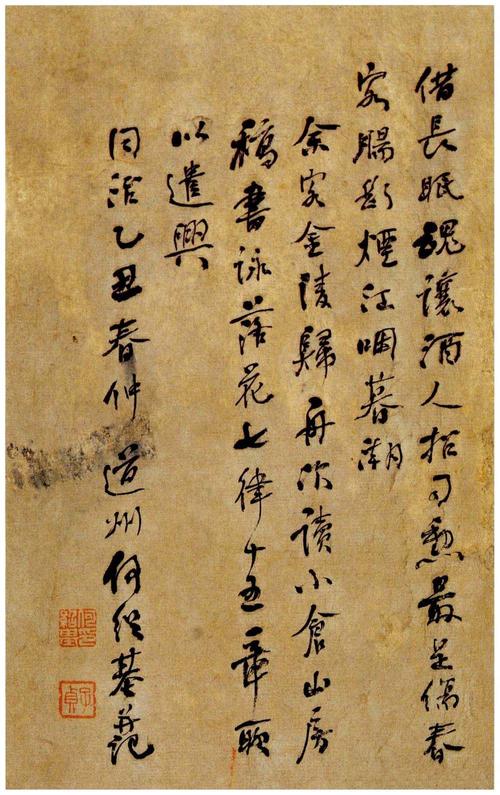 借長眠魂讓酒人招司勲最是傷春
客腸斷煙江咽暮潮
余客金陵歸舟次讀小倉山房
稿書詠落花七律十五章聊
以遣興
同治乙丑春仲 道州何紹基
子貞